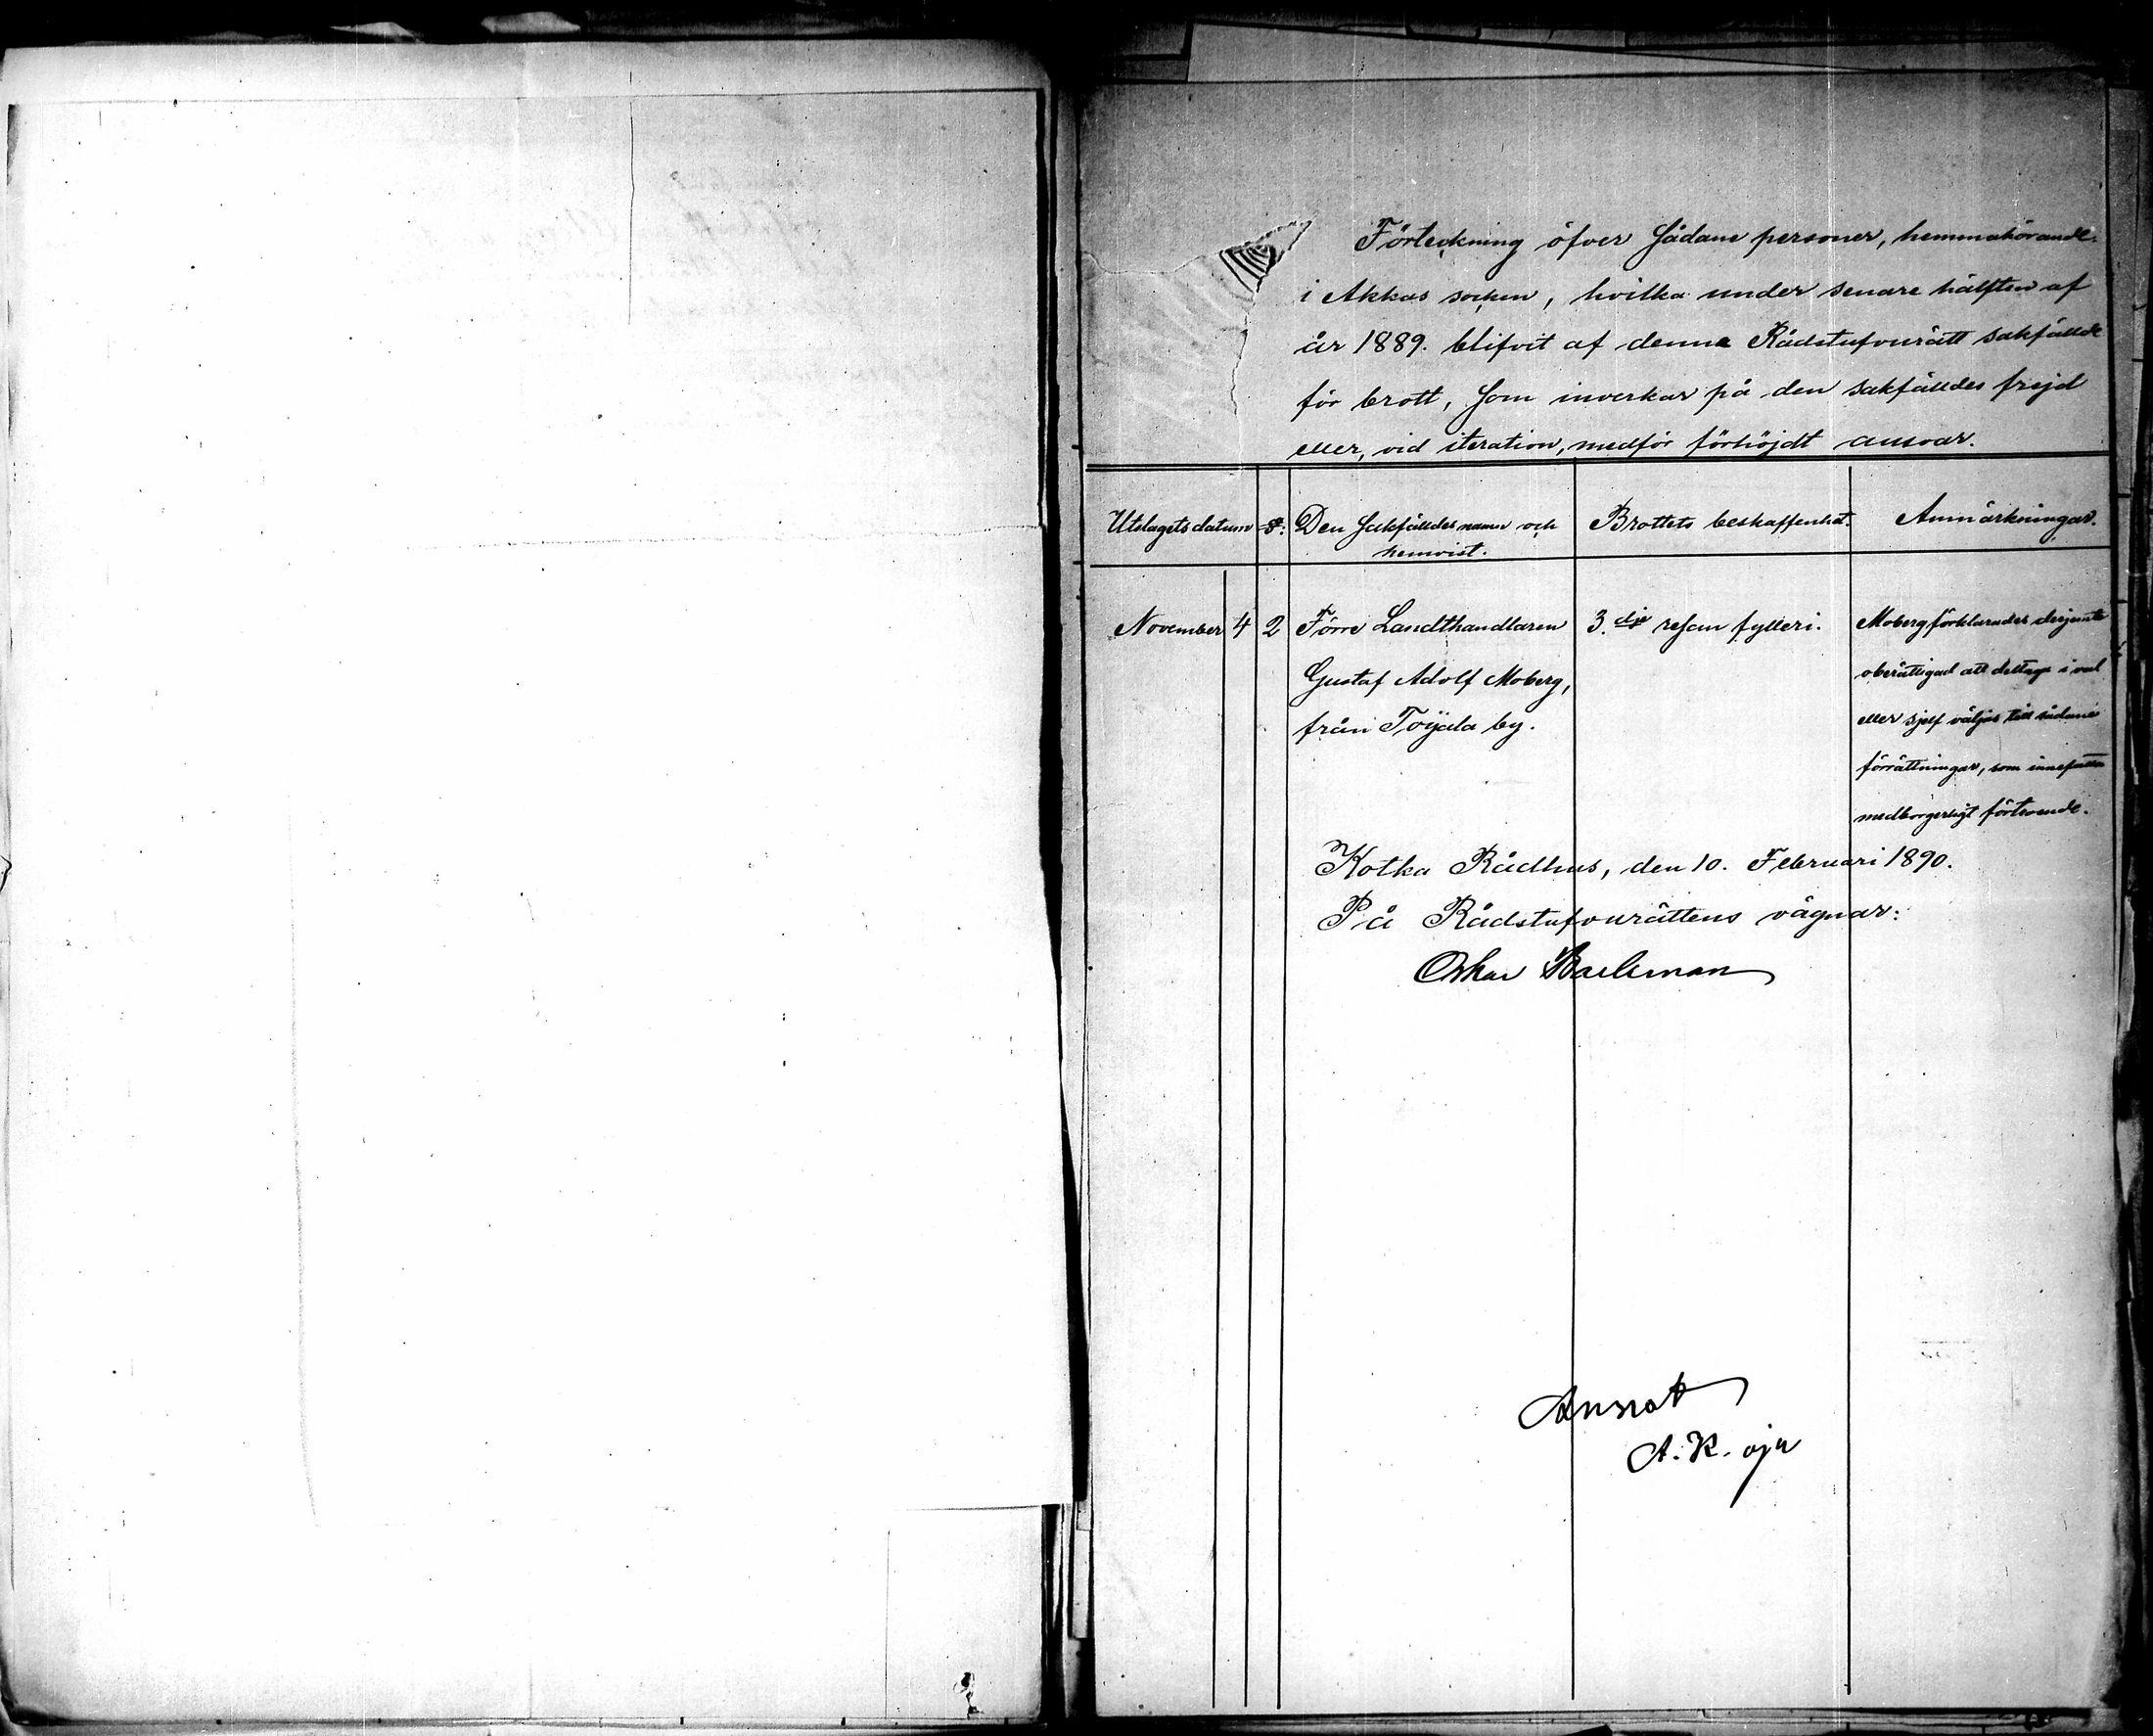 Förteckning öfver sådane personer, hemmahörande
i Akkas socken, hvilka under senare hälften af
år 1889. blifvit af denna Rådstufvurätt sakfällde
för brott, som inverkar på den sakfälldes frejd
eller, vid iteration, medför förhöjdt ansvar.
Utslagets datum §: Den sakfälldes namn och hemvist. Brottets beskaffenhet. Anmärkningar.
November 4 2 Förre Landthandlaren
Gustaf Adolf Moberg,
från Toijala by.
3.dje resan fylleri.
Moberg förklarades derjemte
oberättigad att deltaga i val
eller sjelf väljas till sådane
förrättningar, som innefatta
medborgerligt förtroende.
Kotka Rådhus, den 10. Februari 1890.
På Rådstufvurättens vägnar:
Oskar Backman
A. K.